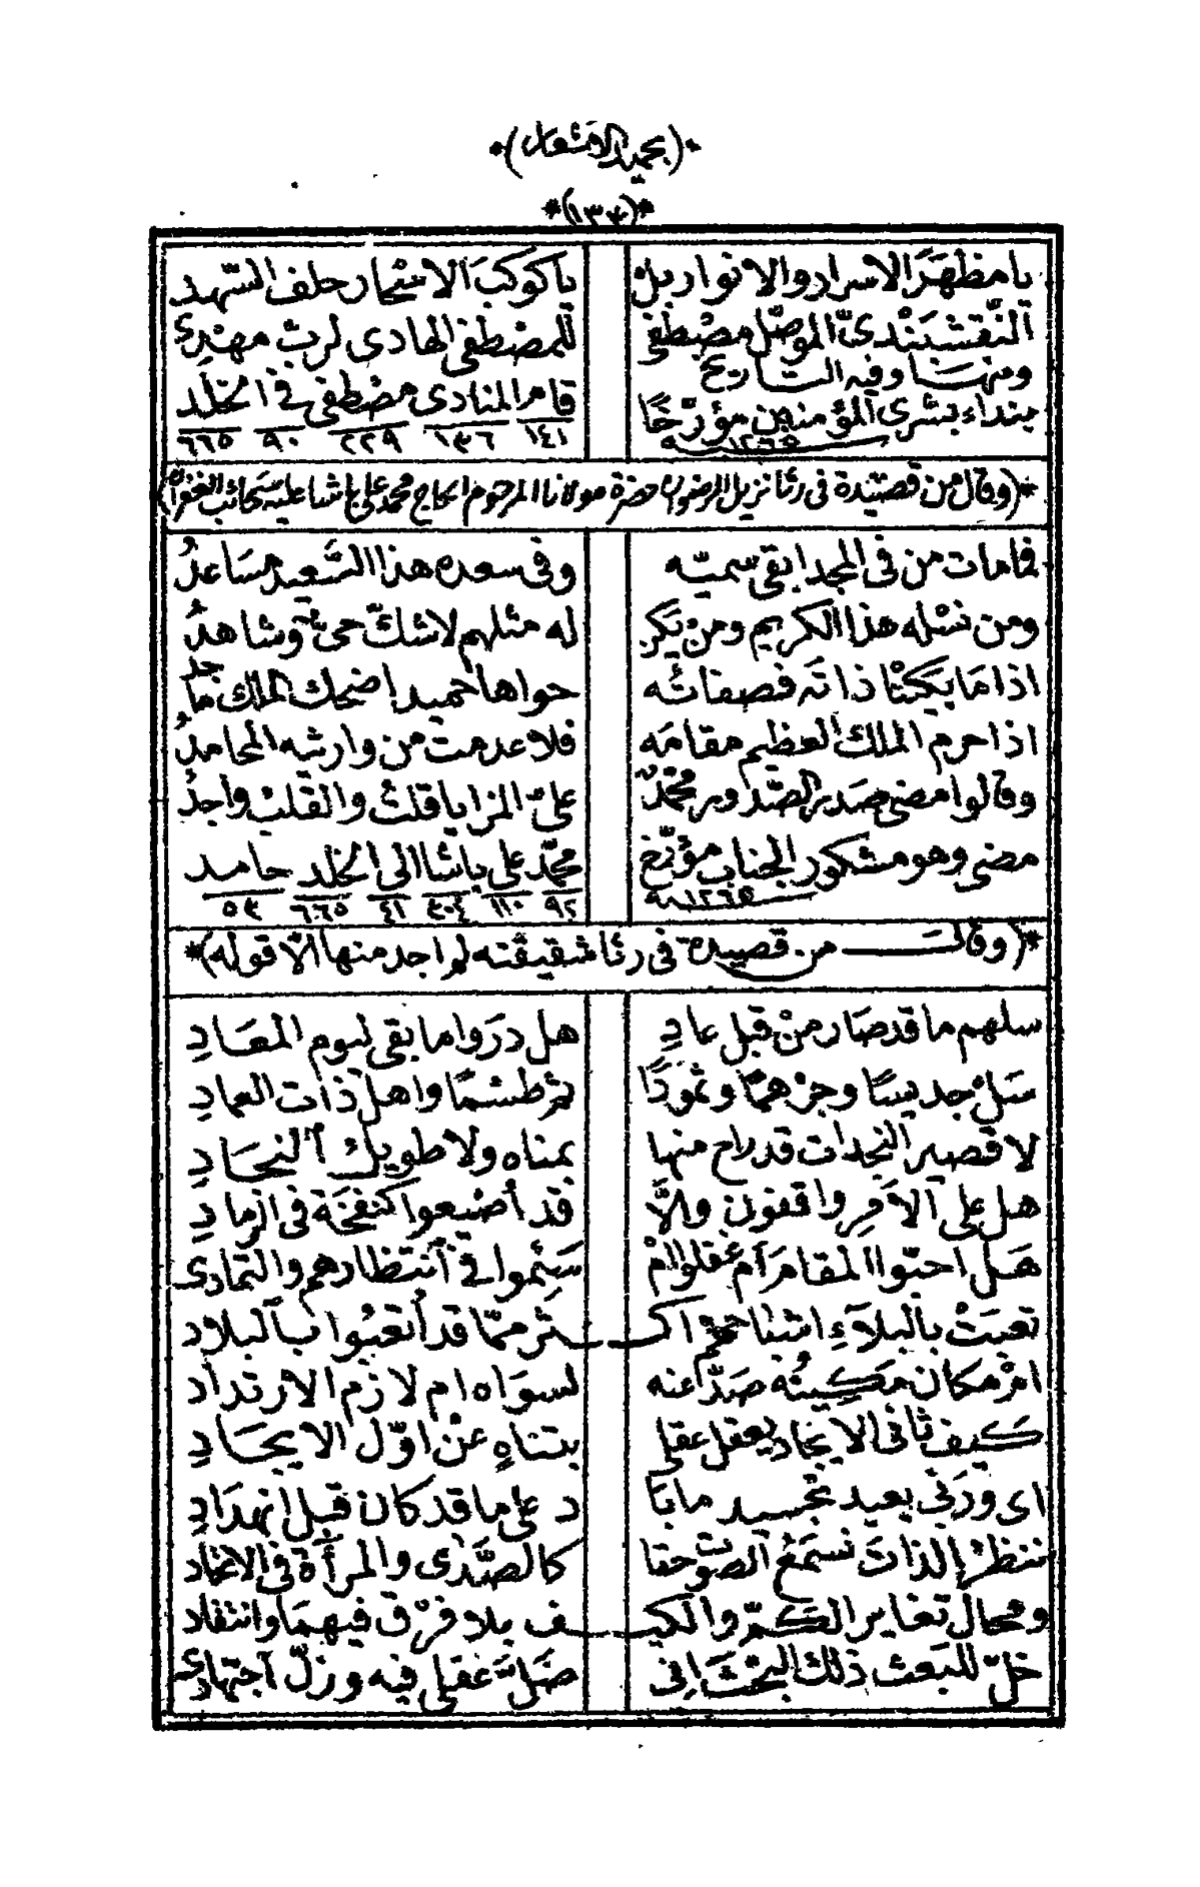 *(بحميد الاشعار)*
*(١٣٤)*
يا مظهَرَ الاسرار والانوار بلْ    يا كوكبَ الاسحار حلف السّهد
النَّقشبَنْدىّ الموصّل مصْطفى    للمصْطفى الهادى لربّ مهْدِىْ
ومنهــا وفيه التــاريخ
بنداء بشرى المؤمنين مؤرّخًا    قام المنادى مصْطفى فى الخلْد
١٢٦٥    ١٤١ ١٣٦ ٢٢٩ ٩٠ ٦٦٥
*(وقال من قصيدة فى رثا نزيل الرضوان حضرة مولانا المرحوم الحاج محمد على باشا عليه سحائب الغفران)*
فما مات من فى المجد ابقى سميّه    وفى سعده هذا السَّعيد مسَاعدُ
ومن نسْله هذا الكريم ومنْ يَكن    له مثلهم لا شكّ حىّ وشاهدُ
اذا مَا بَكَيْنا ذاتَه فصفاتُه    حواها حميد اضحك الملك ماجد
اذا حرم الملك العظيم مقامَه    فلا عدمت من وارثيه المحامدُ
وقالوا مضى صدر الصّدور محمّدٌ    علىّ المزايا قلتُ والقلبْ واجدُ
مضى وهو مشكور الجناب مؤرّخ    محمّد على باشا الى الخلد حامد
١٢٦٥    ٩٢ ١١٠ ٣٠٤ ٤١ ٦٦٥ ٥٣
*(وقالــت من قصيدة فى رثا شقيقته لم اجد منها الّا قوله)*
سلهم ما قد صَار منْ قبل عادِ    هل دَرَوا ما بقى ليوم المعَادِ
سَلْ جديسًا وجرْهمًا وثمودًا    ثم طسْمًا واهل ذات العمادِ
لا قصير النجدات قد راح منها    بمناه ولا طويل النجَادِ
هل على الأمر واقفون والَّا    قد أضيعوا كنفخَة فى الرمادِ
هَل احبّوا المقام أم غفلوا امْ    سَئموا فى أنتظارهم والتمادى
تعبَتْ بالبلاءِ اشباحهم اكــ    ــثر ممّا قد أتعبُوا بالبلاد
امْ مكان مكينُه صَدّ عنه    لسوَاه ام لازم الارتداد
كيف ثانى الايجاد يعقل عقلى    بتناهٍ عنْ اوّل الايجَادِ
اى وربّى بعيد تجسيد ما بَا    د على ما قد كان قبل انهدَادِ
ننظرُ الذات نسمَعُ الصَّوت حقا    كالصَّدَى والمرأة فى الاتحاد
ومحال تغاير الكمّ والكيــ    ــف بلا فرّق فيهمَا وانتقاد
خلّ للبَعث ذلك البحْثَ انى    ضَلَّ عقلى فيه وزلّ اجتهادى